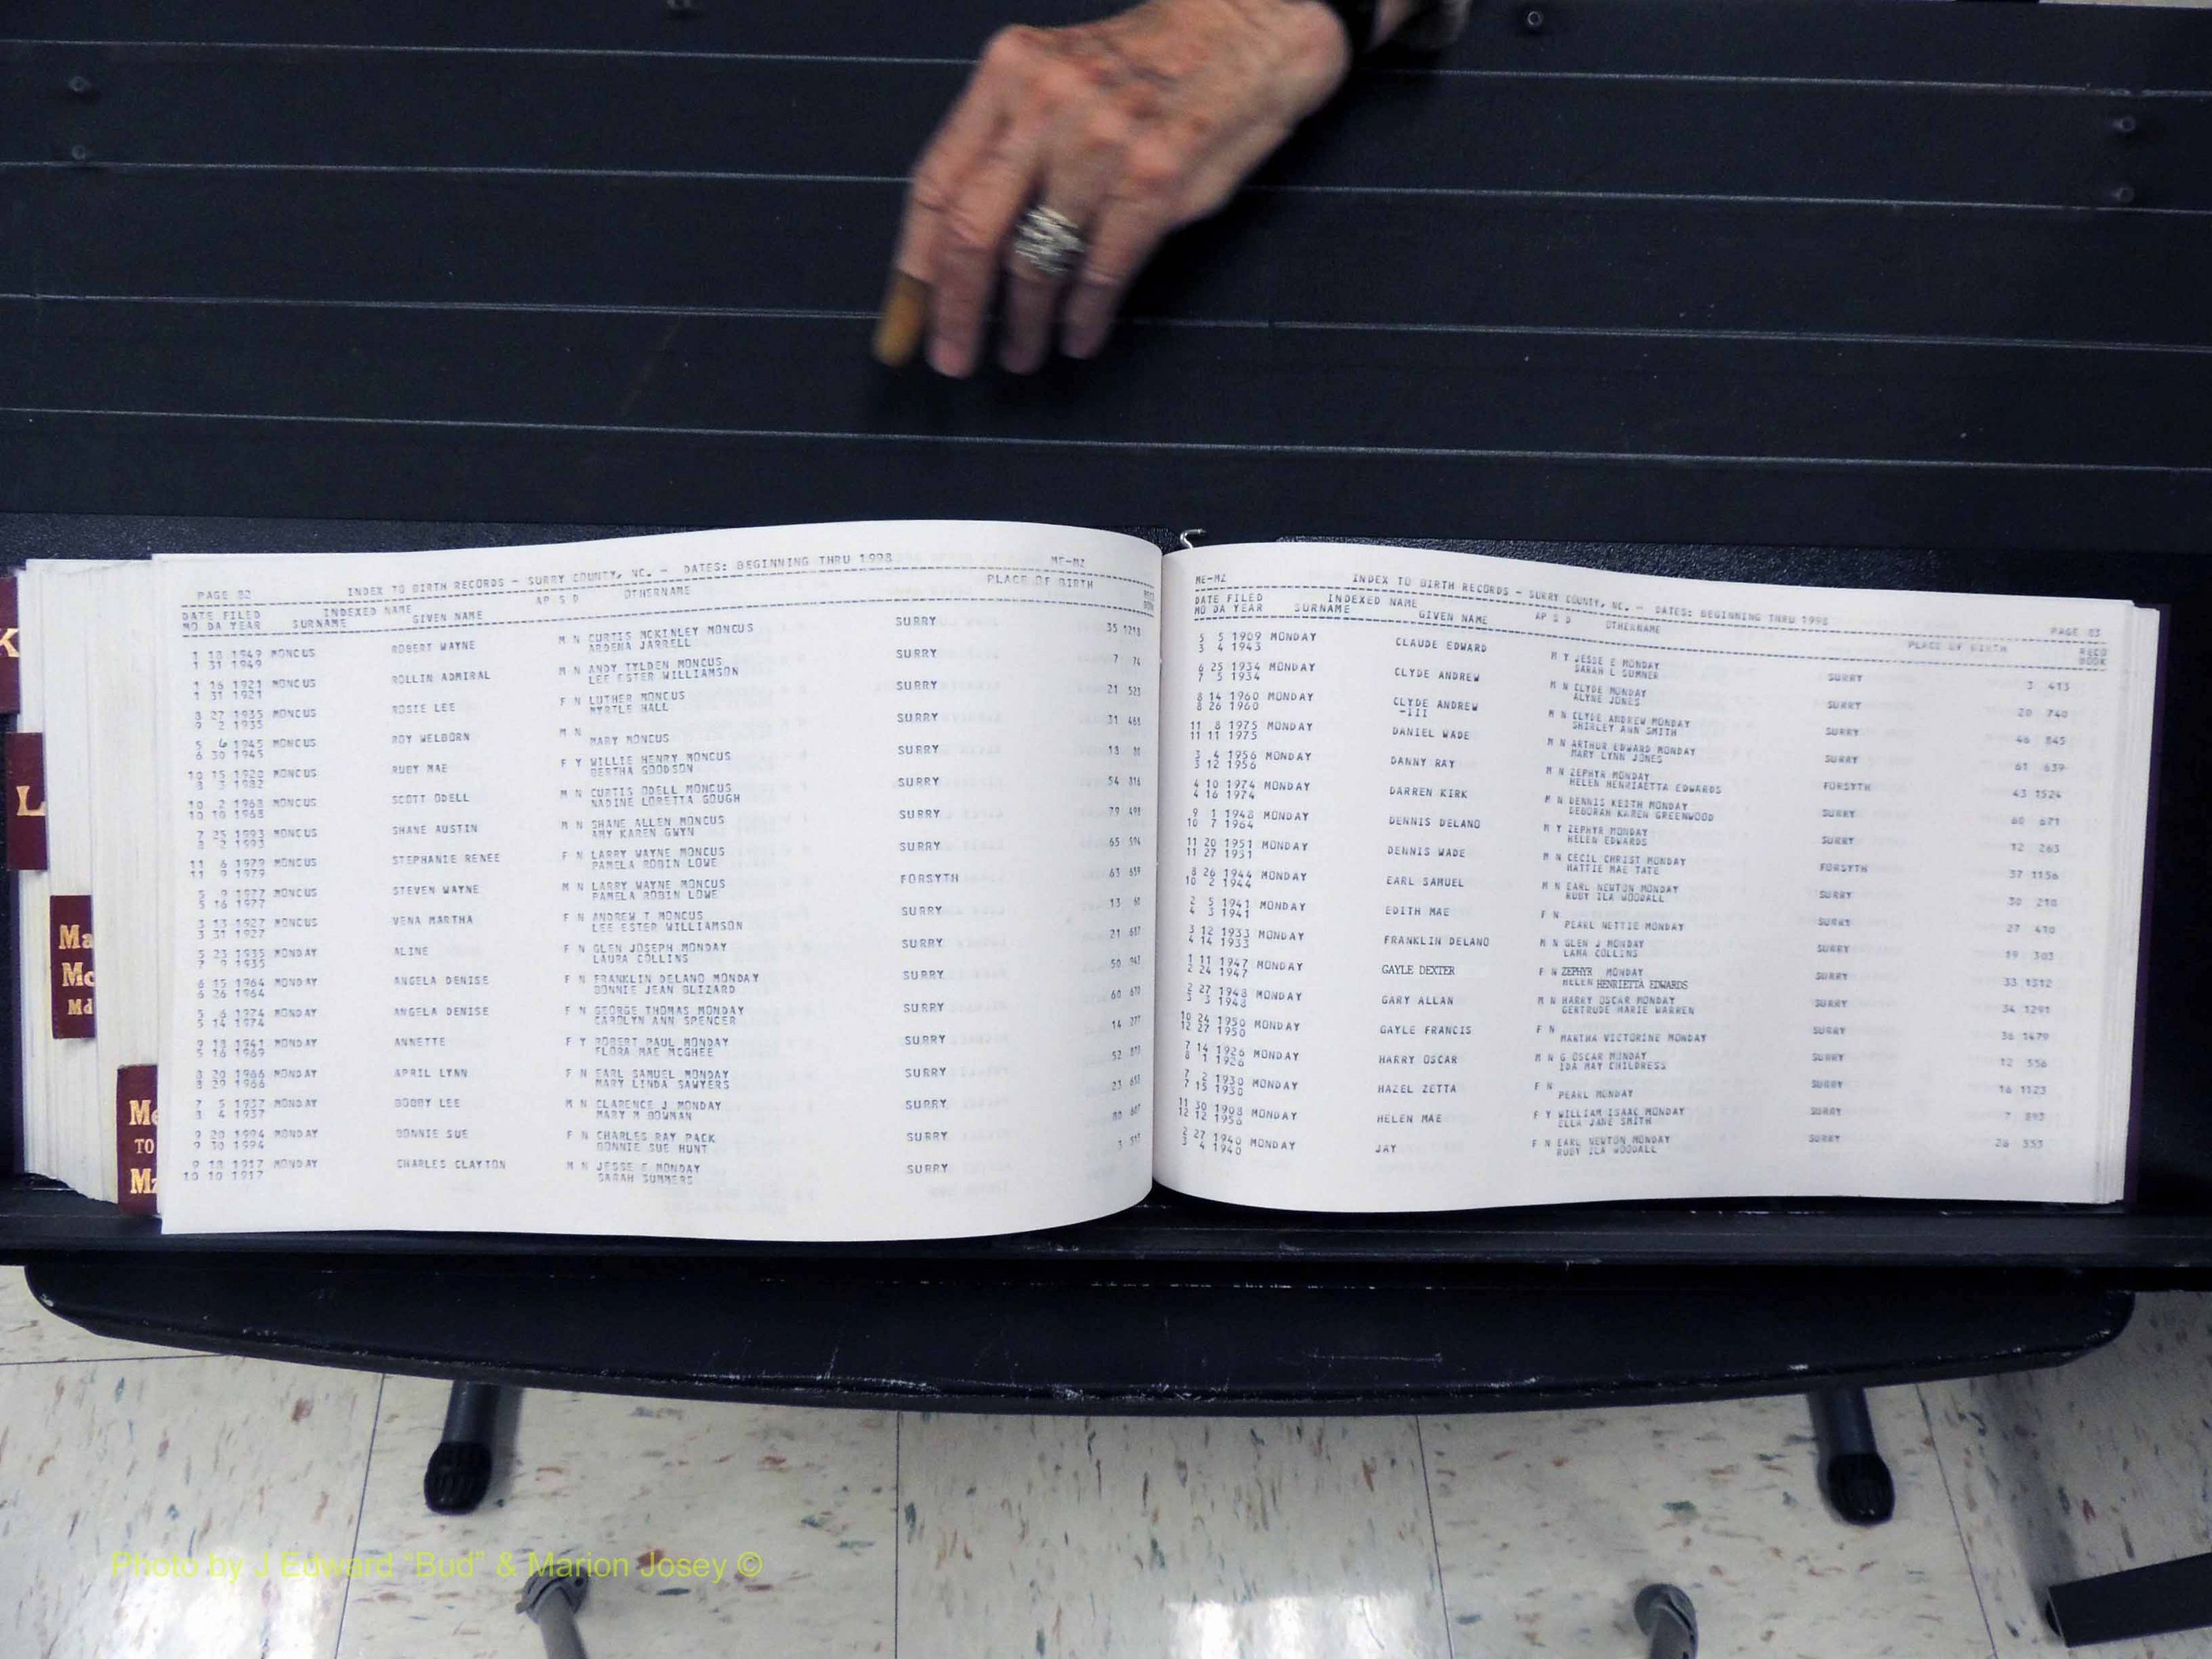 K
L
Ma
Mc
Md
Me
TO
Mz
PAGE 82 INDEX TO BIRTH RECORDS - SURRY COUNTY, NC. - DATES: BEGINNING THRU 1998 ME-MZ
DATE FILED INDEXED NAME AP S D OTHERNAME PLACE OF BIRTH
MO DA YEAR SURNAME GIVEN NAME
1 18 1949 MONCUS ROBERT WAYNE M N CURTIS MCKINLEY MONCUS SURRY 35 1218
1 31 1949 ARDENA JARRELL
1 16 1921 MONCUS ROLLIN ADMIRAL M N ANDY TYLDEN MONCUS SURRY 7 74
1 31 1921 LEE ESTER WILLIAMSON
8 27 1935 MONCUS ROSIE LEE F N LUTHER MONCUS SURRY 21 523
9 2 1935 MYRTLE HALL
5 6 1945 MONCUS ROY WELBORN M N SURRY 31 461
6 30 1945 MARY MONCUS
10 15 1920 MONCUS RUBY MAE F Y WILLIE HENRY MONCUS SURRY 18
8 3 1982 BERTHA GOODSON
10 2 1968 MONCUS SCOTT ODELL M N CURTIS ODELL MONCUS SURRY 54 816
10 10 1968 NADINE LORETTA GOUGH
7 25 1993 MONCUS SHANE AUSTIN M N SHANE ALLEN MONCUS SURRY 79 491
8 2 1993 AMY KAREN GWYN
11 6 1979 MONCUS STEPHANIE RENEE F N LARRY WAYNE MONCUS SURRY 65 594
11 9 1979 PAMELA ROBIN LOWE
5 9 1977 MONCUS STEVEN WAYNE M N LARRY WAYNE MONCUS FORSYTH 63 659
5 16 1977 PAMELA ROBIN LOWE
3 13 1927 MONCUS VENA MARTHA F N ANDREW T MONCUS SURRY 13
3 31 1927 LEE ESTER WILLIAMSON
5 23 1935 MONDAY ALINE F N GLEN JOSEPH MONDAY SURRY 21
7 9 1935 LAURA COLLINS
6 15 1964 MONDAY ANGELA DENISE F N FRANKLIN DELANO MONDAY SURRY 50
6 26 1964 BONNIE JEAN BLIZARD
5 6 1974 MONDAY ANGELA DENISE F N GEORGE THOMAS MONDAY SURRY 60 670
5 14 1974 CAROLYN ANN SPENCER
9 18 1941 MONDAY ANNETTE F Y ROBERT PAUL MONDAY SURRY 14 277
5 16 1969 FLORA MAE MCGHEE
8 20 1966 MONDAY APRIL LYNN F N EARL SAMUEL MONDAY SURRY 52
8 29 1966 MARY LINDA SAWYERS
7 5 1937 MONDAY BOBBY LEE M N CLARENCE J MONDAY SURRY 23
8 4 1937 MARY M BOWMAN
9 20 1994 MONDAY BONNIE SUE F N CHARLES RAY PACK SURRY
9 30 1994 BONNIE SUE HUNT
9 18 1917 MONDAY CHARLES CLAYTON M N JESSE E MONDAY SURRY
10 10 1917 SARAH SUMMERS
ME-MZ INDEX TO BIRTH RECORDS - SURRY COUNTY, NC. - DATES: BEGINNING THRU 1998 PAGE 83
DATE FILED INDEXED NAME AP S D OTHERNAME PLACE OF BIRTH RECD
MO DA YEAR SURNAME GIVEN NAME BOOK
5 5 1909 MONDAY CLAUDE EDWARD M Y JESSE E MONDAY SURRY 3 413
3 4 1943 SARAH L SUMNER
6 25 1934 MONDAY CLYDE ANDREW M N CLYDE MONDAY SURRY 20 740
7 5 1934 ALYNE JONES
8 14 1960 MONDAY CLYDE ANDREW M N CLYDE ANDREW MONDAY SURRY 46 845
8 26 1960 -III SHIRLEY ANN SMITH
11 8 1975 MONDAY DANIEL WADE M N ARTHUR EDWARD MONDAY SURRY 61 639
11 11 1975 MARY LYNN JONES
3 4 1956 MONDAY DANNY RAY M N ZEPHYR MONDAY FORSYTH 43 1524
3 12 1956 HELEN HENRIAETTA EDWARDS
4 10 1974 MONDAY DARREN KIRK M N DENNIS KEITH MONDAY SURRY 60 671
4 16 1974 DEBORAH KAREN GREENWOOD
9 1 1948 MONDAY DENNIS DELANO M Y ZEPHYR MONDAY SURRY 12 263
10 7 1964 HELEN EDWARDS
11 20 1951 MONDAY DENNIS WADE M N CECIL CHRIST MONDAY FORSYTH 37 1156
11 27 1951 HATTIE MAE TATE
8 26 1944 MONDAY EARL SAMUEL M N EARL NEWTON MONDAY SURRY 30 210
10 2 1944 RUBY ILA WOODALL
2 5 1941 MONDAY EDITH MAE F N SURRY 27 410
4 3 1941 PEARL NETTIE MONDAY
3 12 1933 MONDAY FRANKLIN DELANO M N GLEN J MONDAY SURRY 19 303
4 14 1933 LARA COLLINS
1 11 1947 MONDAY GAYLE DEXTER F N ZEPHYR MONDAY SURRY 33 1312
2 24 1947 HELEN HENRIETTA EDWARDS
2 27 1948 MONDAY GARY ALLAN M N HARRY OSCAR MONDAY SURRY 34 1291
3 3 1948 GERTRUDE MARIE WARREN
10 24 1950 MONDAY GAYLE FRANCIS F N SURRY 36 1479
12 27 1950 MARTHA VICTORINE MONDAY
7 14 1926 MONDAY HARRY OSCAR M N G OSCAR MONDAY SURRY 12 556
8 1 1926 IDA MAY CHILDRESS
7 2 1930 MONDAY HAZEL ZETTA F N SURRY 16 1123
7 15 1930 PEARL MONDAY
11 30 1908 MONDAY HELEN MAE F Y WILLIAM ISAAC MONDAY SURRY 7 593
12 12 1956 ELLA JANE SMITH
2 27 1940 MONDAY JAY F N EARL NEWTON MONDAY SURRY 26 553
3 4 1940 RUBY ILA WOODALL
Photo by J Edward "Bud" & Marion Josey ©